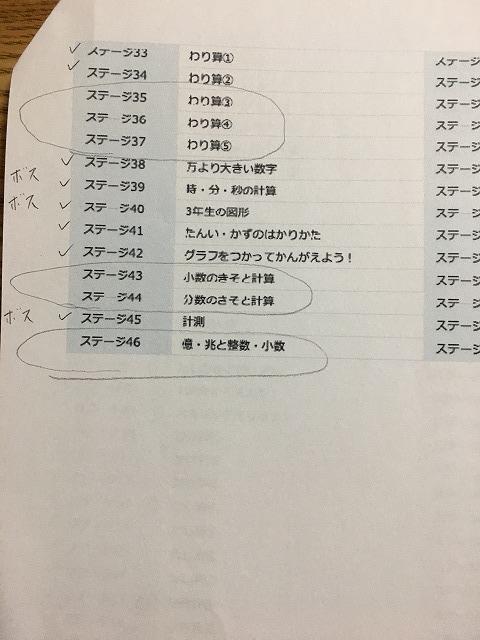 ステージ33 わり算① ステージ
ステージ34 わり算② ステージ
ステージ35 わり算③ ステージ
ステージ36 わり算④ ステージ
ステージ37 わり算⑤ ステージ
ステージ38 万より大きい数字 ステージ
ボス ステージ39 時・分・秒の計算 ステージ
ボス ステージ40 3年生の図形 ステージ
ステージ41 たんい・かずのはかりかた ステージ
ステージ42 グラフをつかってかんがえよう! ステージ
ステージ43 小数のきそと計算 ステージ
ステージ44 分数のきそと計算 ステージ
ボス ステージ45 計測 ステージ
ステージ46 億・兆と整数・小数 ステージ